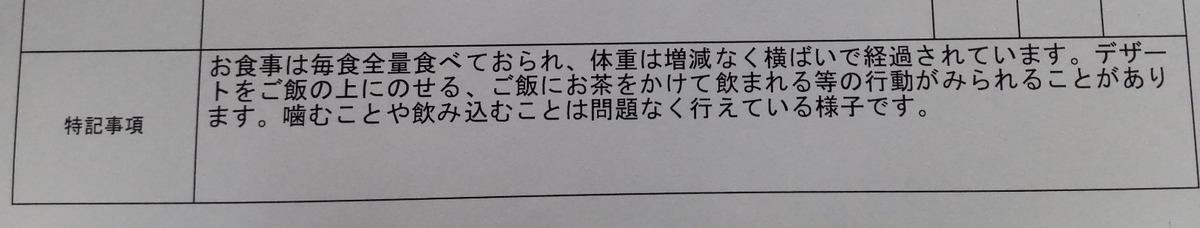 特記事項
お食事は毎食全量食べておられ、体重は増減なく横ばいで経過されています。デザー
トをご飯の上にのせる、ご飯にお茶をかけて飲まれる等の行動がみられることがあり
ます。噛むことや飲み込むことは問題なく行えている様子です。